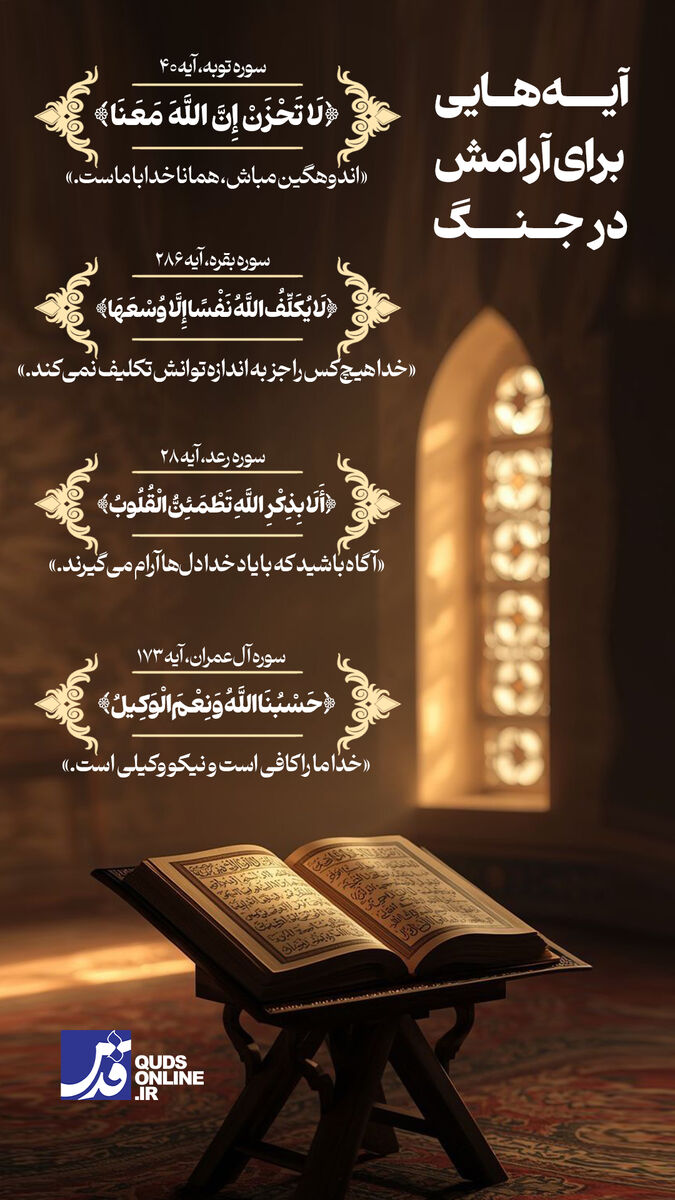 آیه‌هایی
برای آرامش
در جنگ
سوره توبه، آیه ۴۰
﴿لَا تَحْزَنْ إِنَّ اللَّهَ مَعَنَا﴾
«اندوهگین مباش، همانا خدا با ماست.»
سوره بقره، آیه ۲۸۶
﴿لَا يُكَلِّفُ اللَّهُ نَفْسًا إِلَّا وُسْعَهَا﴾
«خدا هیچ‌کس را جز به اندازه توانش تکلیف نمی‌کند.»
سوره رعد، آیه ۲۸
﴿أَلَا بِذِكْرِ اللَّهِ تَطْمَئِنُّ الْقُلُوبُ﴾
«آگاه باشید که با یاد خدا دل‌ها آرام می‌گیرند.»
سوره آل عمران، آیه ۱۷۳
﴿حَسْبُنَا اللَّهُ وَنِعْمَ الْوَكِيلُ﴾
«خدا ما را کافی است و نیکو وکیلی است.»
قدس
QUDS
ONLINE
.IR